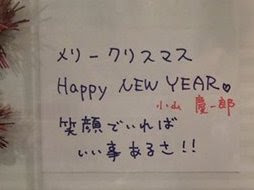 メリークリスマス
Happy NEW YEAR♡
小山 慶一郎
笑顔でいれば
いい事あるさ!!